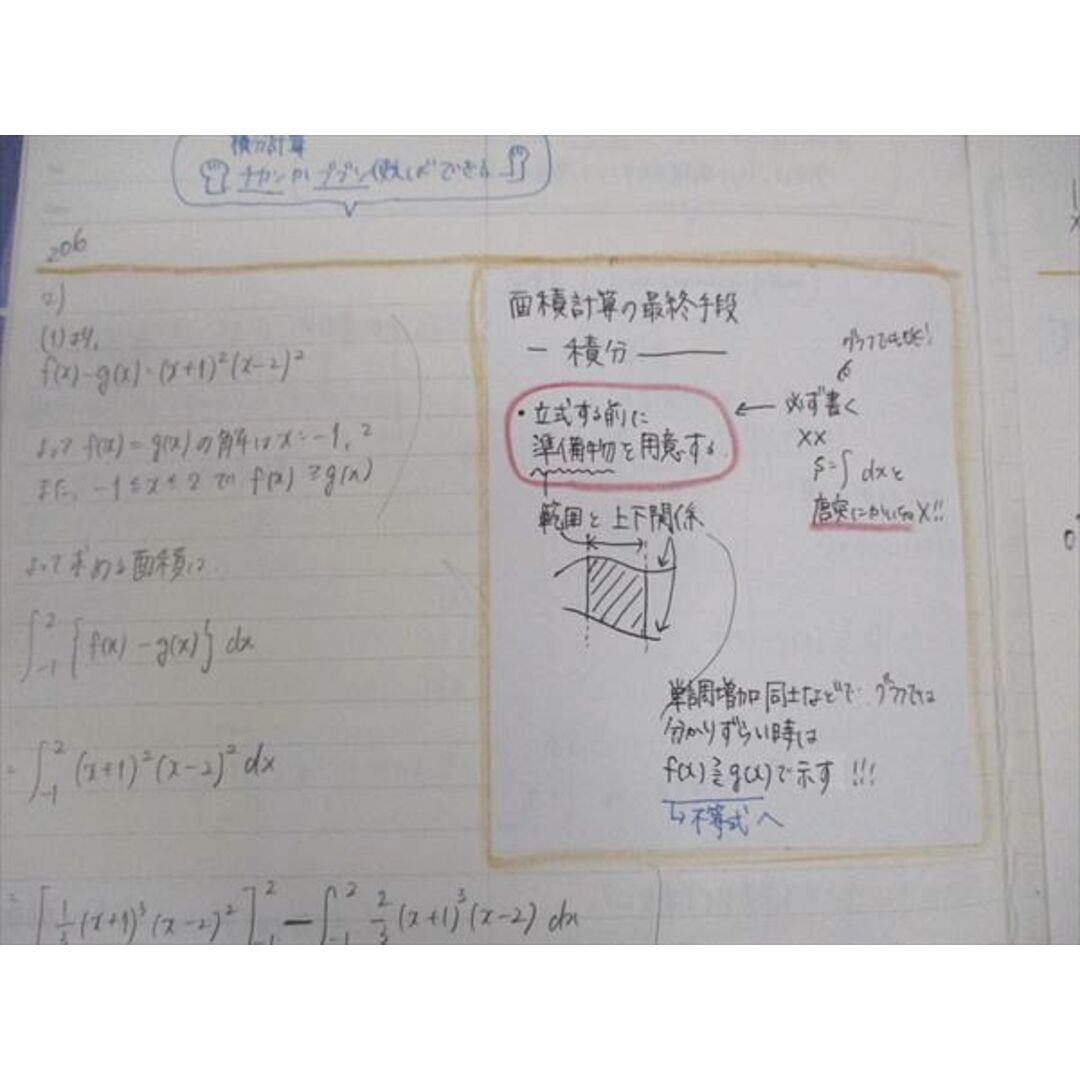 積分計算
206
2)
(1)より、
f(x)-g(x)=(x+1)²(x-2)²
よって f(x)=g(x)の解は x=-1, 2
また、-1≦x≦2で f(x)≧g(x)
よって求める面積は
∫₋₁² {f(x)-g(x)} dx
= ∫₋₁² (x+1)²(x-2)² dx
= [1/3 (x+1)³(x-2)²]₋₁² - ∫₋₁² 2/3 (x+1)³(x-2) dx
面積計算の最終手段
― 積分 ―
・立式する前に
準備物を用意する
← 必ず書く
××
S=∫ dxと
範囲と上下関係
単調増加同士などで グラフでは
分かりずらい時は
f(x)≧g(x)で示す!!!
↳不等式へ